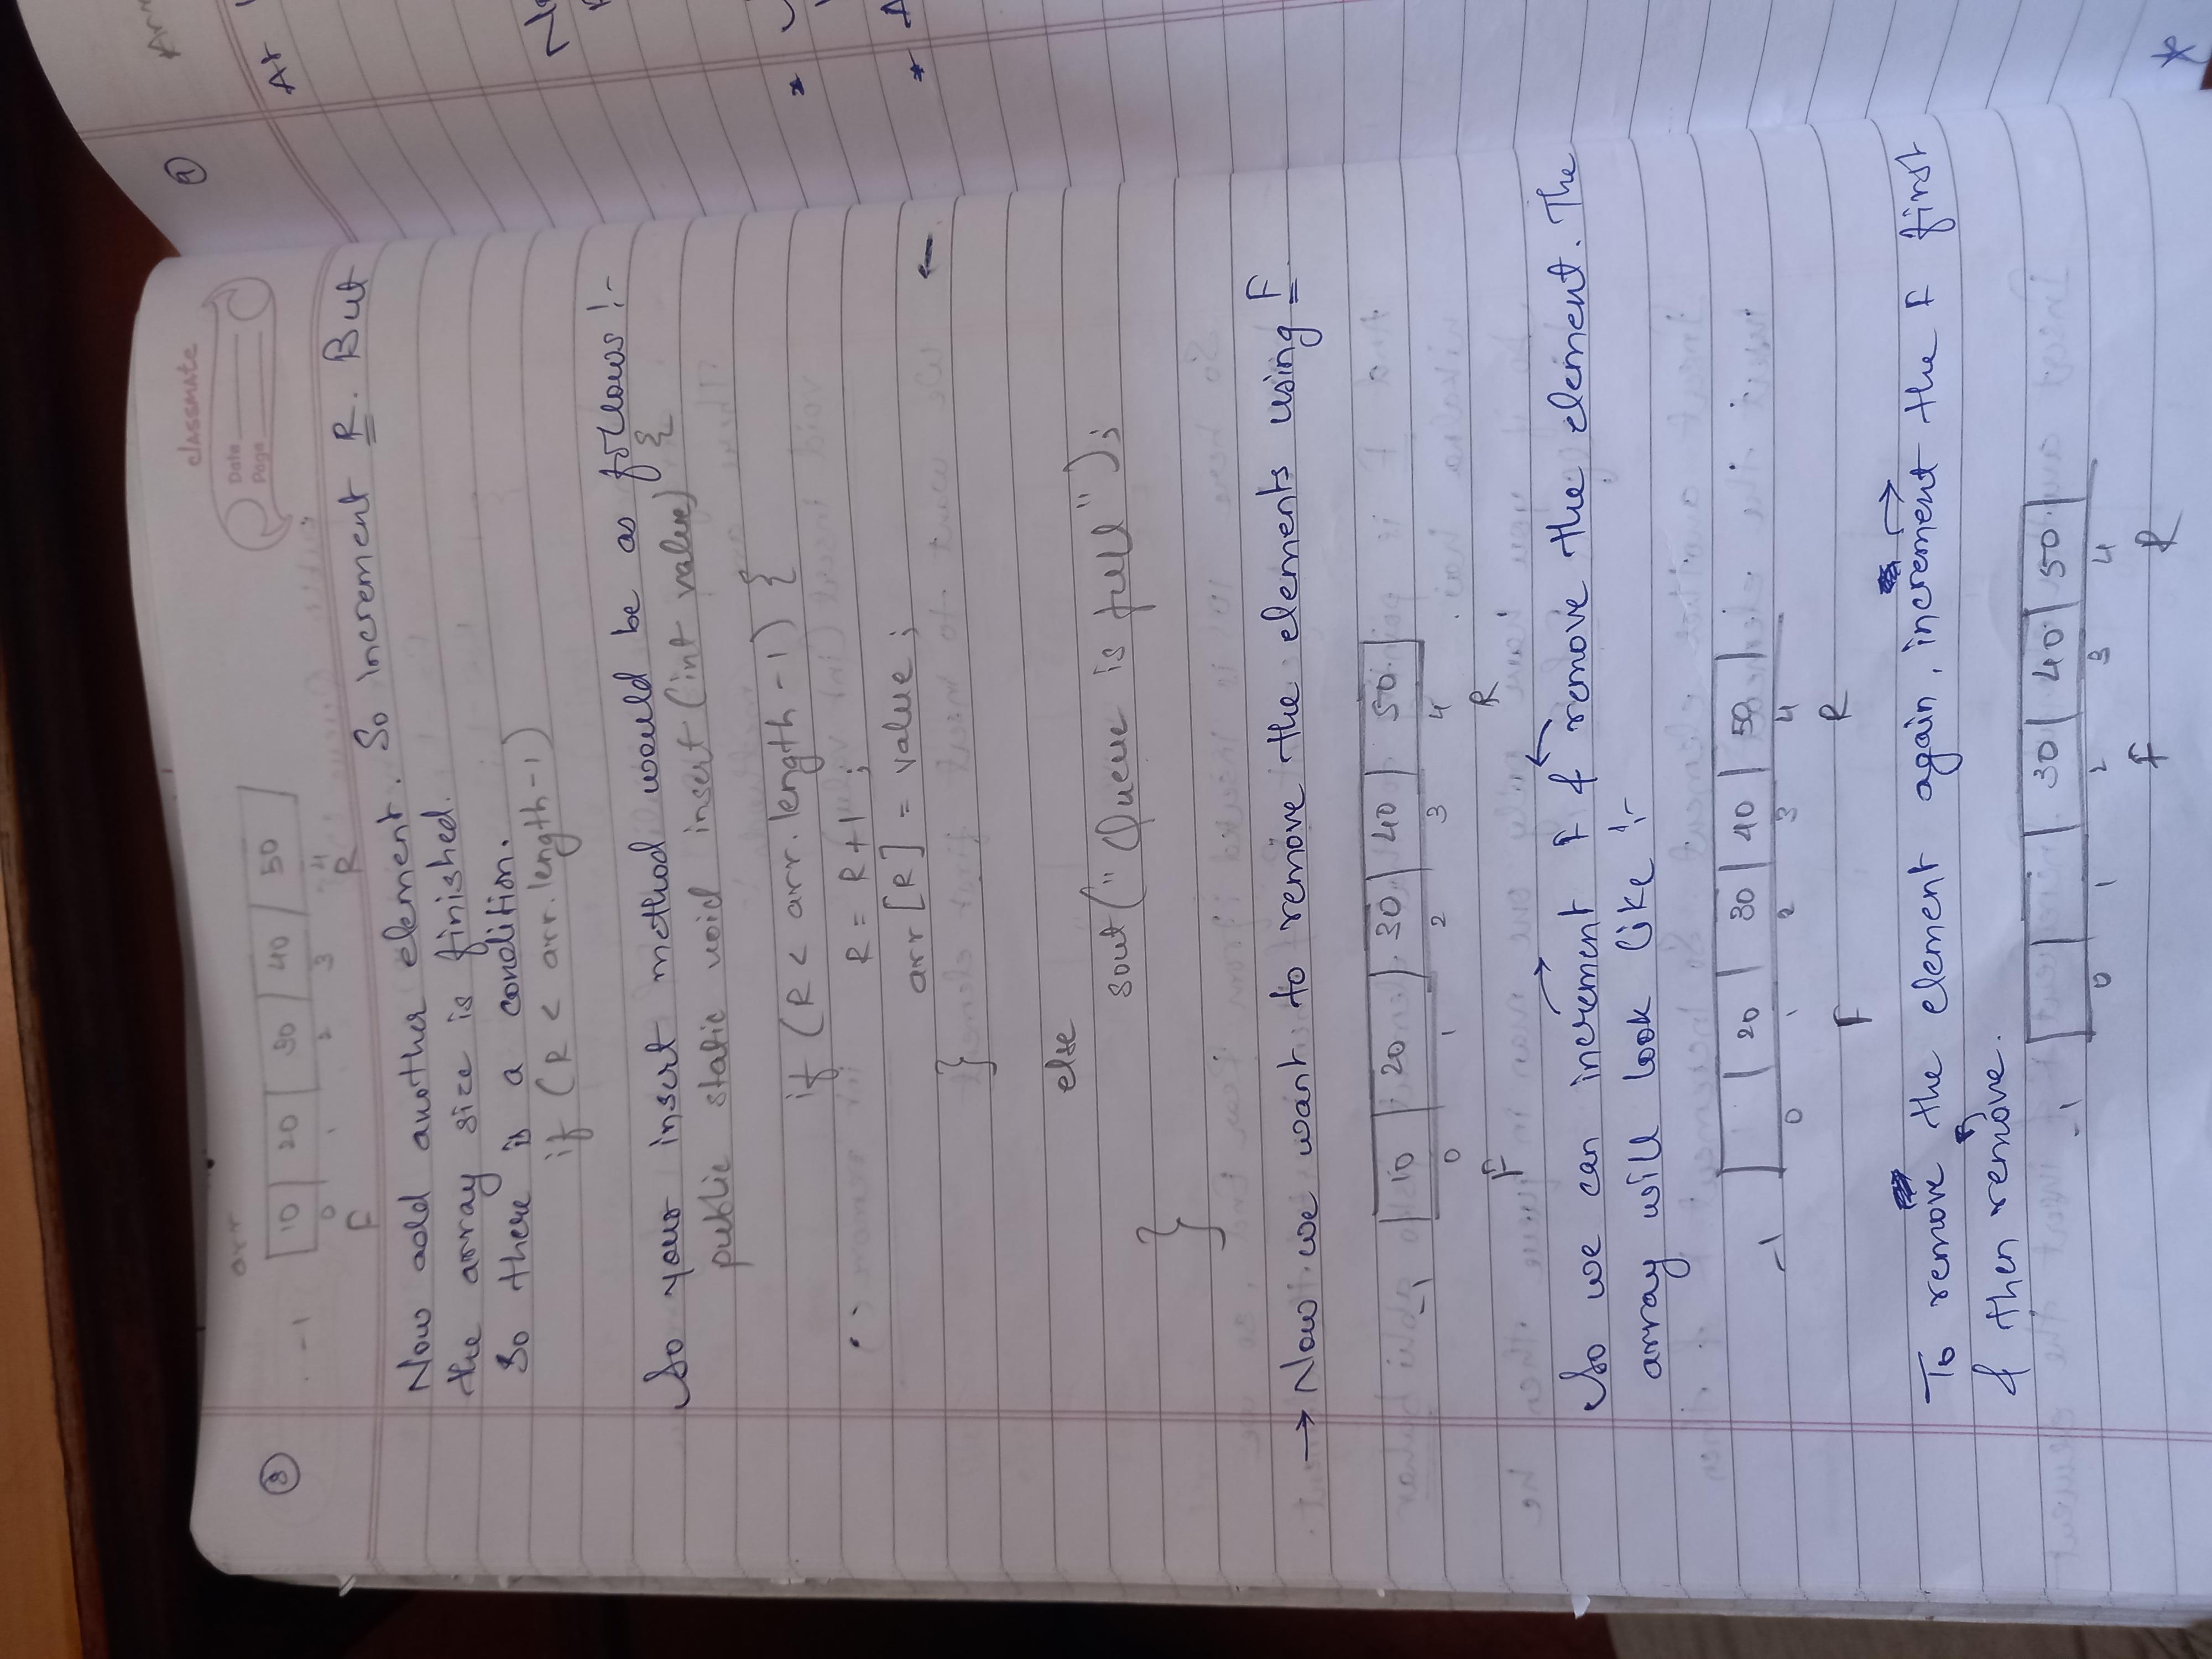 classmate
Date
Page
8
arr
-1 10 20 30 40 50
0 1 2 3 4
F R
Now add another element. So increment R. But
the array size is finished.
So there is a condition.
if (R < arr.length-1)
So your insert method would be as follows :-
public static void insert (int value) {
if (R < arr.length-1) {
R = R+1 ;
arr [R] = value ;
}
else
sout (" Queue is full ");
}
→ Now we want to remove the elements using F
-1 10 20 30 40 50
0 1 2 3 4
F R
So we can increment F & remove the element. The
array will look like :-
-1 20 30 40 50
0 1 2 3 4
F R
To remove the element again, increment the F first
& then remove.
-1 30 40 50
0 1 2 3 4
F R
9
At